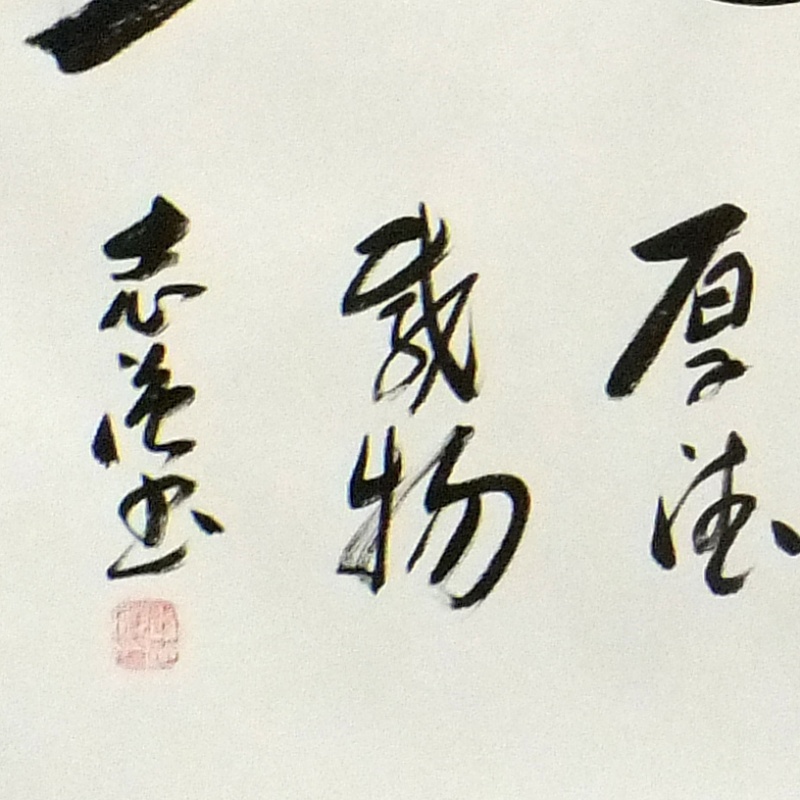 厚德
載物
志 書